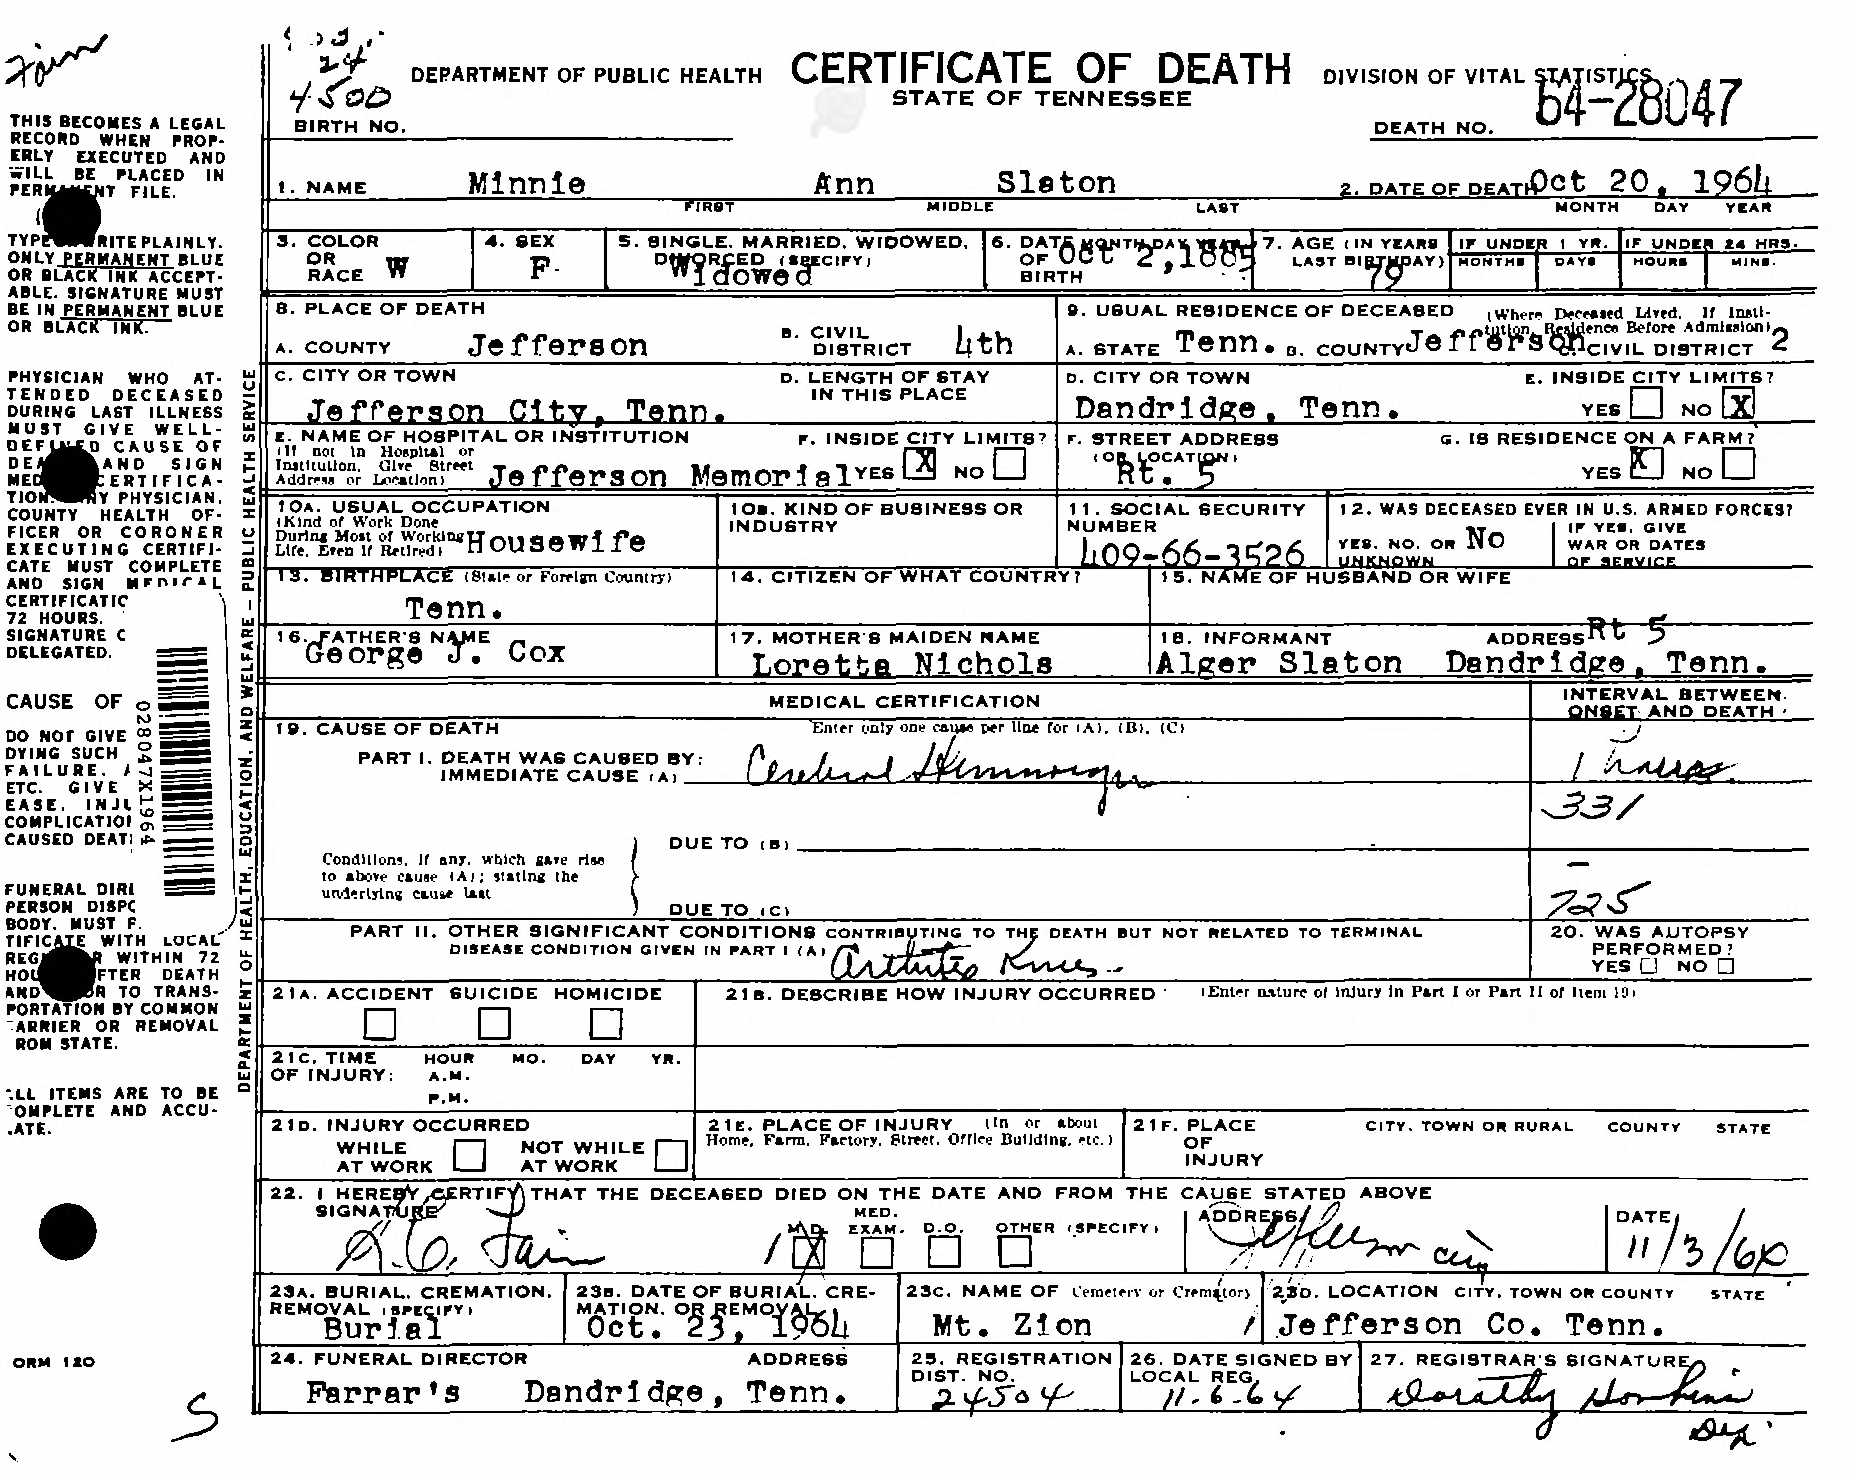 Fain
24
4500
DEPARTMENT OF PUBLIC HEALTH CERTIFICATE OF DEATH DIVISION OF VITAL STATISTICS
STATE OF TENNESSEE
64-28047
BIRTH NO. DEATH NO.
THIS BECOMES A LEGAL
RECORD WHEN PROP-
ERLY EXECUTED AND
WILL BE PLACED IN
PERMANENT FILE.
RITE PLAINLY.
ONLY PERMANENT BLUE
OR BLACK INK ACCEPT-
ABLE. SIGNATURE MUST
BE IN PERMANENT BLUE
OR BLACK INK.
PHYSICIAN WHO AT-
TENDED DECEASED
DURING LAST ILLNESS
MUST GIVE WELL-
DEFINED CAUSE OF
AND SIGN
CERTIFICA-
TION. PHYSICIAN,
COUNTY HEALTH OF-
FICER OR CORONER
EXECUTING CERTIFI-
CATE MUST COMPLETE
AND SIGN MEDICAL
CERTIFICATIC
72 HOURS.
SIGNATURE C
DELEGATED.
CAUSE OF
DO NOT GIVE
DYING SUCH
FAILURE,
ETC. GIVE
EASE, INJU
COMPLICATIO
CAUSED DEAT
028047X1964
FUNERAL DIRI
PERSON DISPC
BODY, MUST F
TIFICATE WITH LOCAL
WITHIN 72
AFTER DEATH
AND TO TRANS-
PORTATION BY COMMON
ARRIER OR REMOVAL
ROM STATE.
LL ITEMS ARE TO BE
OMPLETE AND ACCU-
ATE.
ORM 120
S
DEPARTMENT OF HEALTH, EDUCATION, AND WELFARE – PUBLIC HEALTH SERVICE
1. NAME Minnie Ann Slaton 2. DATE OF DEATH Oct 20, 1964
FIRST MIDDLE LAST MONTH DAY YEAR
3. COLOR OR RACE W
4. SEX F
5. SINGLE, MARRIED, WIDOWED, DIVORCED (SPECIFY) Widowed
6. DATE OF BIRTH MONTH DAY YEAR Oct 2,1885
7. AGE (IN YEARS LAST BIRTHDAY) 79
IF UNDER 1 YR. MONTHS DAYS
IF UNDER 24 HRS. HOURS MINS.
8. PLACE OF DEATH
A. COUNTY Jefferson B. CIVIL DISTRICT 4th
9. USUAL RESIDENCE OF DECEASED (Where Deceased Lived. If Institution, Residence Before Admission)
A. STATE Tenn. B. COUNTY Jefferson C. CIVIL DISTRICT 2
C. CITY OR TOWN Jefferson City, Tenn.
D. LENGTH OF STAY IN THIS PLACE
D. CITY OR TOWN Dandridge, Tenn.
E. INSIDE CITY LIMITS? YES NO X
E. NAME OF HOSPITAL OR INSTITUTION (If not in Hospital or Institution, Give Street Address or Location) Jefferson Memorial
F. INSIDE CITY LIMITS? YES X NO
F. STREET ADDRESS (OR LOCATION) Rt. 5
G. IS RESIDENCE ON A FARM? YES X NO
10A. USUAL OCCUPATION (Kind of Work Done During Most of Working Life, Even If Retired) Housewife
10B. KIND OF BUSINESS OR INDUSTRY
11. SOCIAL SECURITY NUMBER 409-66-3526
12. WAS DECEASED EVER IN U.S. ARMED FORCES?
YES, NO, OR UNKNOWN No
IF YES, GIVE WAR OR DATES OF SERVICE
13. BIRTHPLACE (State or Foreign Country) Tenn.
14. CITIZEN OF WHAT COUNTRY?
15. NAME OF HUSBAND OR WIFE
16. FATHER'S NAME George J. Cox
17. MOTHER'S MAIDEN NAME Loretta Nichols
18. INFORMANT ADDRESS Rt 5
Alger Slaton Dandridge, Tenn.
MEDICAL CERTIFICATION
INTERVAL BETWEEN ONSET AND DEATH
19. CAUSE OF DEATH Enter only one cause per line for (A), (B), (C)
PART I. DEATH WAS CAUSED BY:
IMMEDIATE CAUSE (A) Cerebral Hemmorage
331
DUE TO (B)
Conditions, if any, which gave rise
to above cause (A); stating the
underlying cause last
DUE TO (C)
725
PART II. OTHER SIGNIFICANT CONDITIONS CONTRIBUTING TO THE DEATH BUT NOT RELATED TO TERMINAL
DISEASE CONDITION GIVEN IN PART I (A) Arthritis Knees
20. WAS AUTOPSY PERFORMED?
YES NO
21A. ACCIDENT SUICIDE HOMICIDE
21B. DESCRIBE HOW INJURY OCCURRED (Enter nature of injury in Part I or Part II of Item 19)
21C. TIME OF INJURY: HOUR MO. DAY YR.
A.M.
P.M.
21D. INJURY OCCURRED
WHILE AT WORK NOT WHILE AT WORK
21E. PLACE OF INJURY (In or about Home, Farm, Factory, Street, Office Building, etc.)
21F. PLACE OF INJURY CITY, TOWN OR RURAL COUNTY STATE
22. I HEREBY CERTIFY THAT THE DECEASED DIED ON THE DATE AND FROM THE CAUSE STATED ABOVE
SIGNATURE Fain
M.D. X MED. EXAM. D.O. OTHER (SPECIFY)
ADDRESS Jefferson City
DATE 11/3/64
23A. BURIAL, CREMATION, REMOVAL (SPECIFY) Burial
23B. DATE OF BURIAL, CREMATION, OR REMOVAL Oct. 23, 1964
23C. NAME OF Cemetery or Crematory Mt. Zion
23D. LOCATION CITY, TOWN OR COUNTY STATE Jefferson Co. Tenn.
24. FUNERAL DIRECTOR ADDRESS
Farrar's Dandridge, Tenn.
25. REGISTRATION DIST. NO. 24504
26. DATE SIGNED BY LOCAL REG. 11-6-64
27. REGISTRAR'S SIGNATURE Dorothy
Dep.